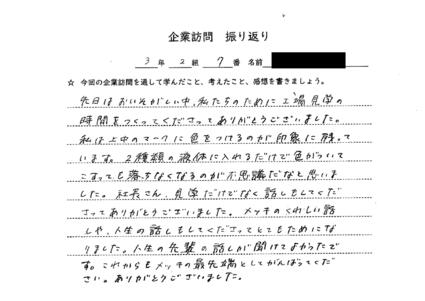 企業訪問 振り返り
3年 2組 7番 名前
☆ 今回の企業訪問を通して学んだこと、考えたこと、感想を書きましょう。
先日はおいそがしい中、私たちのために工場見学の
時間をつくってくださってありがとうございました。
私は上中のマークに色をつけるのが印象に残って
います。2種類の液体に入れるだけで色がついて
こすっても落ちなくなるのが不思議だなと思いま
した。社長さん、見学だけでなく話しもしてくだ
さってありがとうございました。メッキのくわしい話
しや、人生の話しもしてくださってとてもためにな
りました。人生の先輩の話しが聞けてよかったで
す。これからもメッキの最先端としてがんばってくだ
さい。ありがとうございました。